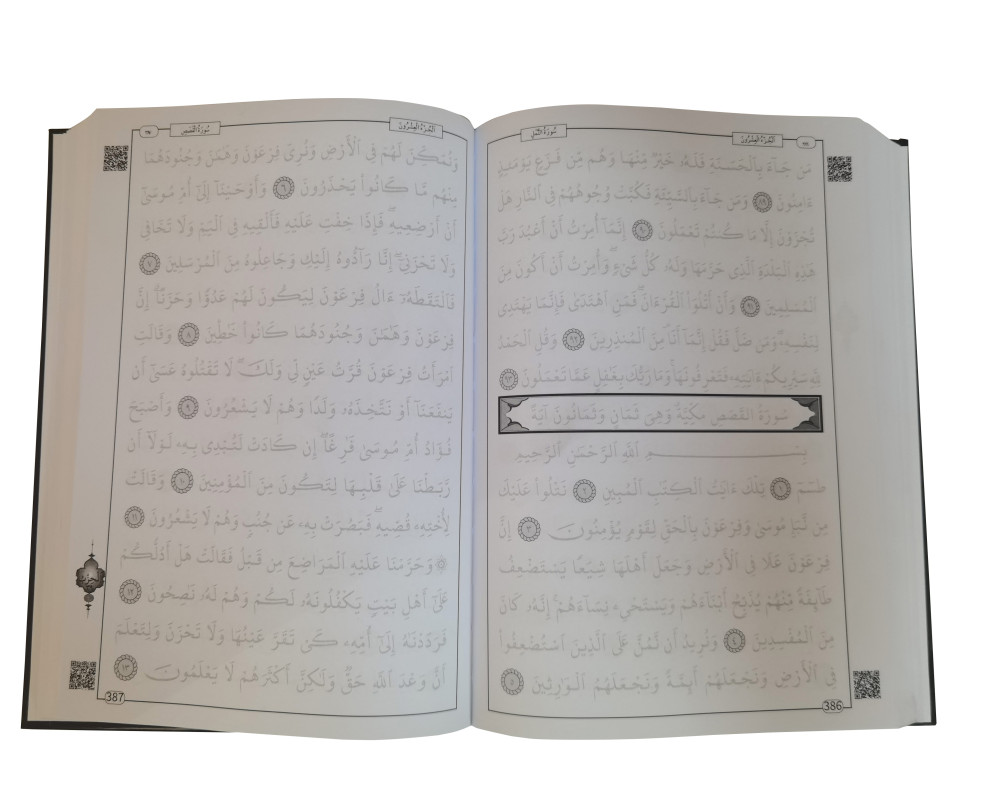 الجُزْءُ العِشْرُونَ سُورَةُ النَّمْلِ
مَن جَآءَ بِالْحَسَنَةِ فَلَهُۥ خَيْرٌ مِّنْهَا وَهُم مِّن فَزَعٍ يَوْمَئِذٍ
ءَامِنُونَ ٨٩ وَمَن جَآءَ بِالسَّيِّئَةِ فَكُبَّتْ وُجُوهُهُمْ فِي النَّارِ هَلْ
تُجْزَوْنَ إِلَّا مَا كُنتُمْ تَعْمَلُونَ ٩٠ إِنَّمَآ أُمِرْتُ أَنْ أَعْبُدَ رَبَّ
هَٰذِهِ الْبَلْدَةِ الَّذِي حَرَّمَهَا وَلَهُۥ كُلُّ شَيْءٍ ۖ وَأُمِرْتُ أَنْ أَكُونَ مِنَ
الْمُسْلِمِينَ ٩١ وَأَنْ أَتْلُوَا۟ الْقُرْءَانَ ۖ فَمَنِ اهْتَدَىٰ فَإِنَّمَا يَهْتَدِي
لِنَفْسِهِۦ ۖ وَمَن ضَلَّ فَقُلْ إِنَّمَآ أَنَا۠ مِنَ الْمُنذِرِينَ ٩٢ وَقُلِ الْحَمْدُ
لِلَّهِ سَيُرِيكُمْ ءَايَٰتِهِۦ فَتَعْرِفُونَهَا ۚ وَمَا رَبُّكَ بِغَٰفِلٍ عَمَّا تَعْمَلُونَ ٩٣
سُورَةُ القَصَصِ مَكِّيَّةٌ وَهِيَ ثَمَانٍ وَثَمَانُونَ آيَةً
بِسْمِ اللَّهِ الرَّحْمَٰنِ الرَّحِيمِ
طسٓمٓ ١ تِلْكَ ءَايَٰتُ الْكِتَٰبِ الْمُبِينِ ٢ نَتْلُوا۟ عَلَيْكَ
مِن نَّبَإِ مُوسَىٰ وَفِرْعَوْنَ بِالْحَقِّ لِقَوْمٍ يُؤْمِنُونَ ٣ إِنَّ
فِرْعَوْنَ عَلَا فِي الْأَرْضِ وَجَعَلَ أَهْلَهَا شِيَعًا يَسْتَضْعِفُ
طَآئِفَةً مِّنْهُمْ يُذَبِّحُ أَبْنَآءَهُمْ وَيَسْتَحْيِۦ نِسَآءَهُمْ ۚ إِنَّهُۥ كَانَ
مِنَ الْمُفْسِدِينَ ٤ وَنُرِيدُ أَن نَّمُنَّ عَلَى الَّذِينَ اسْتُضْعِفُوا۟
فِي الْأَرْضِ وَنَجْعَلَهُمْ أَئِمَّةً وَنَجْعَلَهُمُ الْوَٰرِثِينَ ٥
386
الجُزْءُ العِشْرُونَ سُورَةُ القَصَصِ
وَنُمَكِّنَ لَهُمْ فِي الْأَرْضِ وَنُرِيَ فِرْعَوْنَ وَهَٰمَٰنَ وَجُنُودَهُمَا
مِنْهُم مَّا كَانُوا۟ يَحْذَرُونَ ٦ وَأَوْحَيْنَآ إِلَىٰٓ أُمِّ مُوسَىٰٓ
أَنْ أَرْضِعِيهِ ۖ فَإِذَا خِفْتِ عَلَيْهِ فَأَلْقِيهِ فِي الْيَمِّ وَلَا تَخَافِي
وَلَا تَحْزَنِيٓ ۖ إِنَّا رَآدُّوهُ إِلَيْكِ وَجَاعِلُوهُ مِنَ الْمُرْسَلِينَ ٧
فَالْتَقَطَهُۥٓ ءَالُ فِرْعَوْنَ لِيَكُونَ لَهُمْ عَدُوًّا وَحَزَنًا ۗ إِنَّ
فِرْعَوْنَ وَهَٰمَٰنَ وَجُنُودَهُمَا كَانُوا۟ خَٰطِـِٔينَ ٨ وَقَالَتِ
امْرَأَتُ فِرْعَوْنَ قُرَّتُ عَيْنٍ لِّي وَلَكَ ۖ لَا تَقْتُلُوهُ عَسَىٰٓ أَن
يَنفَعَنَآ أَوْ نَتَّخِذَهُۥ وَلَدًا وَهُمْ لَا يَشْعُرُونَ ٩ وَأَصْبَحَ
فُؤَادُ أُمِّ مُوسَىٰ فَٰرِغًا ۖ إِن كَادَتْ لَتُبْدِي بِهِۦ لَوْلَآ أَن
رَّبَطْنَا عَلَىٰ قَلْبِهَا لِتَكُونَ مِنَ الْمُؤْمِنِينَ ١٠ وَقَالَتْ
لِأُخْتِهِۦ قُصِّيهِ ۖ فَبَصُرَتْ بِهِۦ عَن جُنُبٍ وَهُمْ لَا يَشْعُرُونَ ١١
۞ وَحَرَّمْنَا عَلَيْهِ الْمَرَاضِعَ مِن قَبْلُ فَقَالَتْ هَلْ أَدُلُّكُمْ
عَلَىٰٓ أَهْلِ بَيْتٍ يَكْفُلُونَهُۥ لَكُمْ وَهُمْ لَهُۥ نَٰصِحُونَ ١٢
فَرَدَدْنَٰهُ إِلَىٰٓ أُمِّهِۦ كَيْ تَقَرَّ عَيْنُهَا وَلَا تَحْزَنَ وَلِتَعْلَمَ
أَنَّ وَعْدَ اللَّهِ حَقٌّ وَلَٰكِنَّ أَكْثَرَهُمْ لَا يَعْلَمُونَ ١٣
387